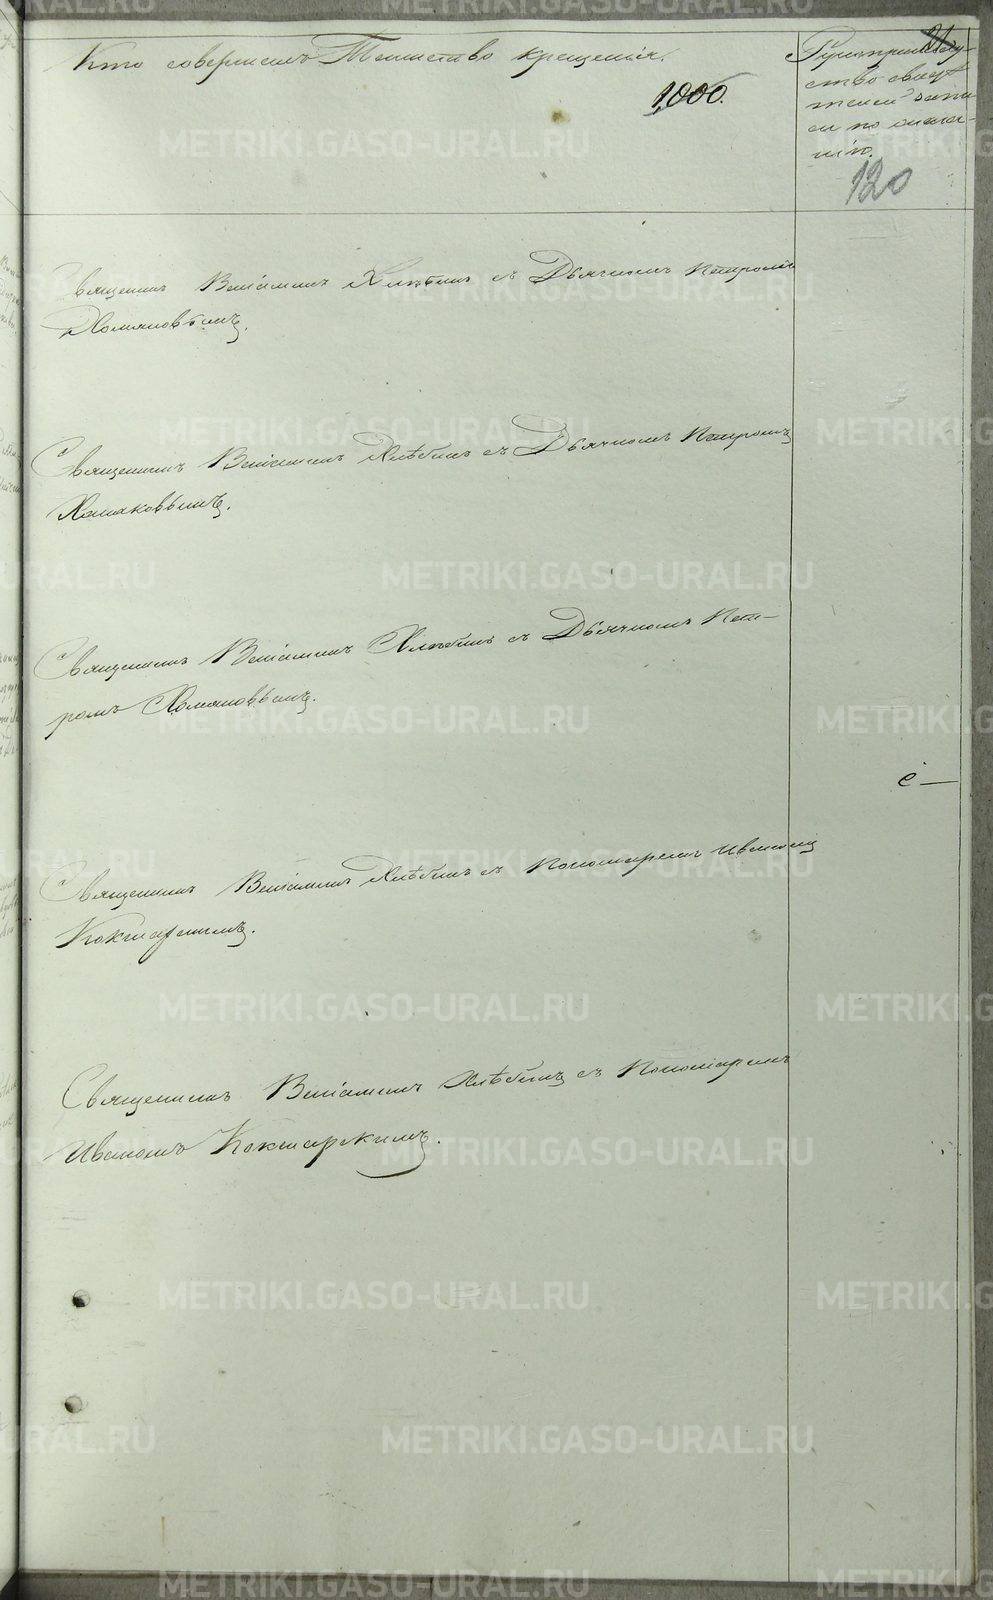 Кто совершилъ Таинство крещенія.
1,000.
Рукоприкладство свидѣтелей записи по желанію.
120
Священникъ Веніаминъ Хлѣбинъ съ Дьячкомъ Петромъ
Хомяковымъ.
Священникъ Веніаминъ Хлѣбинъ съ Дьячкомъ Петромъ
Хомяковымъ.
Священникъ Веніаминъ Хлѣбинъ съ Дьячкомъ Пет-
ромъ Хомяковымъ.
Священникъ Веніаминъ Хлѣбинъ съ Пономаремъ Иваномъ
Кокшарскимъ.
Священникъ Веніаминъ Хлѣбинъ съ Пономаремъ
Иваномъ Кокшарскимъ.
METRIKI.GASO-URAL.RU